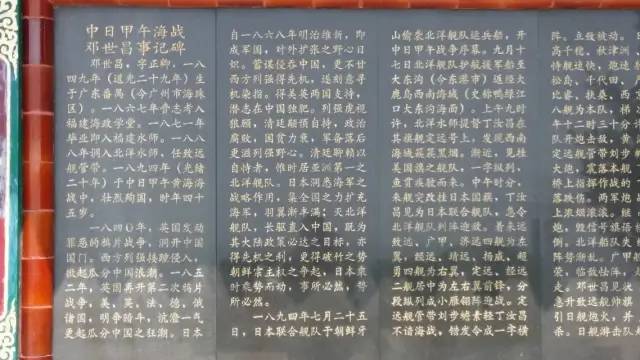 中日甲午海战
邓世昌事记碑
邓世昌，字正卿，一八
四九年（道光二十九年）生
于广东番禺（今广州市海珠
区）。一八六七年曾志考入
福建海政学堂。一八七一年
毕业即入福建水师。一八八
八年调入北洋水师，任致远
舰管带。一八九四年（光绪
二十年）于中日甲午黄海海
战中，壮烈殉国，时年四十
五岁。
一八四〇年，英国发动
罪恶的鸦片战争，洞开中国
国门。西方列强接踵侵入，
掀起瓜分中国浪潮。一八五
二年，英国再开第二次鸦片
战争，美、英、法、德、俄
诸国，明争暗斗，沆瀣一气
更起瓜分中国之狂潮。日本
自一八六八年明治维新，即
成军国，对外扩张之野心日
炽。蓄谋侵吞中国，更不甘
西方列强得先机，遂刻意寻
机染指。得美英两国支持，
潜志在中国独肥。列强虎视
狼顾，清廷颟顸自持，政治
腐败，国贫力衰，军备落后
更滋列强野心。清廷聊赖以
自持者，惟时居亚洲第一之
北洋舰队。日本洞悉海军之
战略作用，集全国之力扩充
海军，羽翼渐丰满；灭北洋
舰队，长驱直入中国，既为
其大陆政策必达之目标，亦
得先机之利，更得破竹之势
朝鲜宗主权之争起，日本乘
时乘势而动，事所必然，势
所必然。
一八九四年七月二十五
日，日本联合舰队于朝鲜牙
山偷袭北洋舰队运兵船，开
中日甲午战争序幕。九月十
七日北洋舰队护航援军船至
大东沟（今东港市）返经大
鹿岛西南海域（史称鸭绿江
口大东沟海面）。上午九时
许，北洋水师提督丁汝昌在
其旗舰定远号上，发现西南
海域蔽蔽黑烟。渐远，见挂
美国旗之舰队，一字纵列，
鱼贯疾驶而来。中午时分，
来舰突改挂日本国旗，丁汝
昌见为日本联合舰队，急令
北洋舰队列阵迎敌。着来远
致远、广甲、济远四舰为左
翼，经远、靖远、扬威、超
勇四舰为右翼，定远、镇远
二舰居中为左右翼前锋，分
段纵列成小雁翎阵迎战。定
远舰管带刘步蟾素轻丁汝昌
不谙海战，错发令成一字横
阵。立致被动。
高千穗，秋津洲
特舰速快，炮速
松岛，千代田、
比睿、扶桑、西
八舰为本队。梯
午十二时三十分
队开炮击敌，黄
定远舰管带刘步
大炮，震落本舰
桥上指挥作战的
落跌伤。两军的
上浓烟滚滚。舰
炮，毁信号旗语
倒。北洋舰队失
阵势渐乱。广甲
荣，临敌怯阵，
走。邓世昌见状
急升致远舰帅旗
引日舰炮火，并
录。日舰游击队